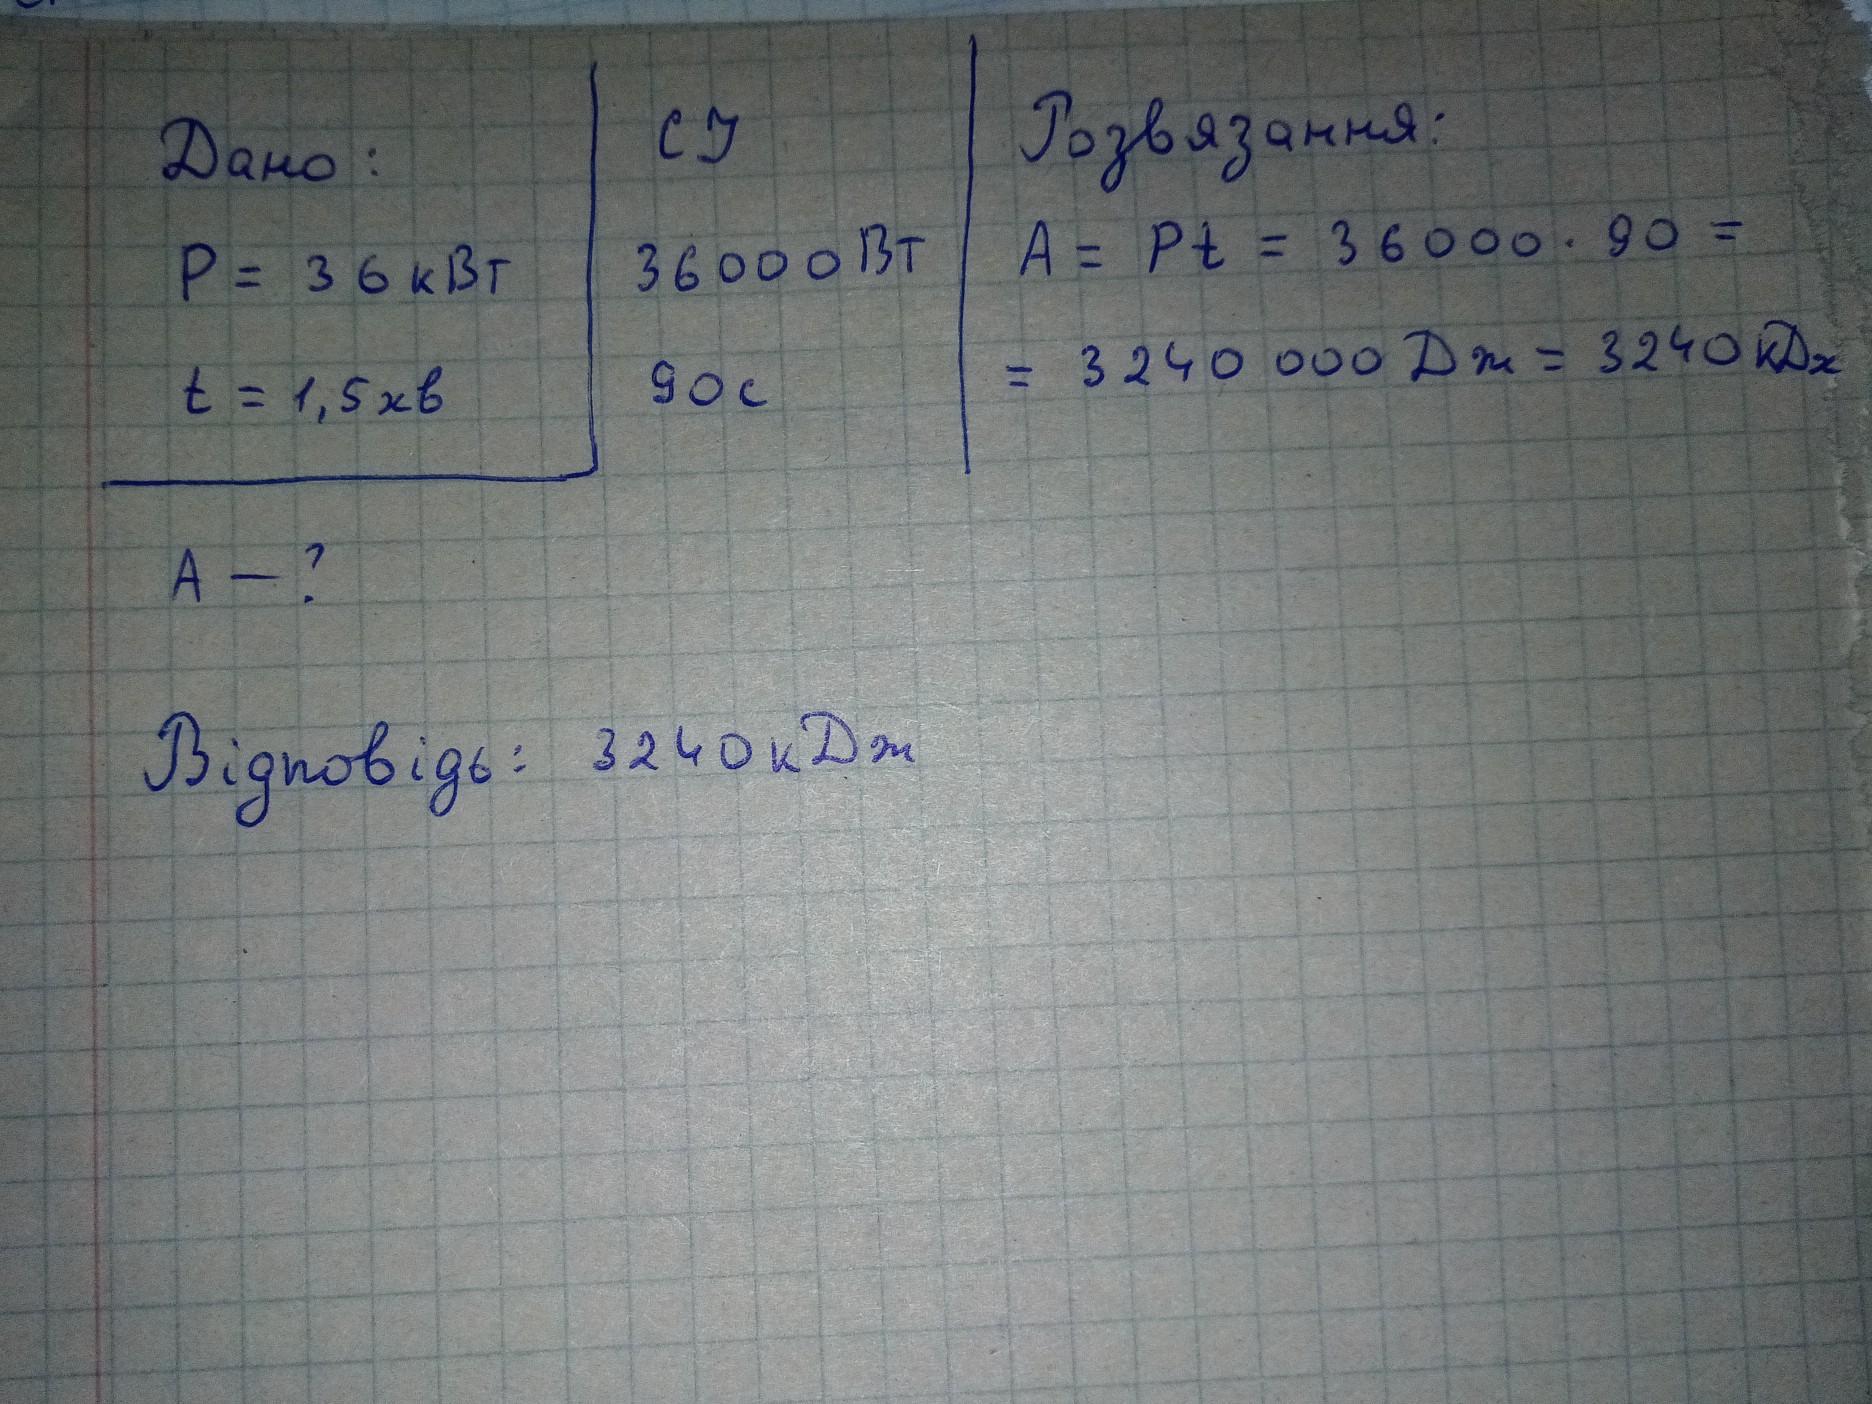 Дано:
P = 36 кВт
t = 1,5 хв
A — ?
СІ
36000 Вт
90 с
Розвязання:
A = Pt = 36000 · 90 =
= 3240 000 Дж = 3240 кДж
Відповідь: 3240 кДж